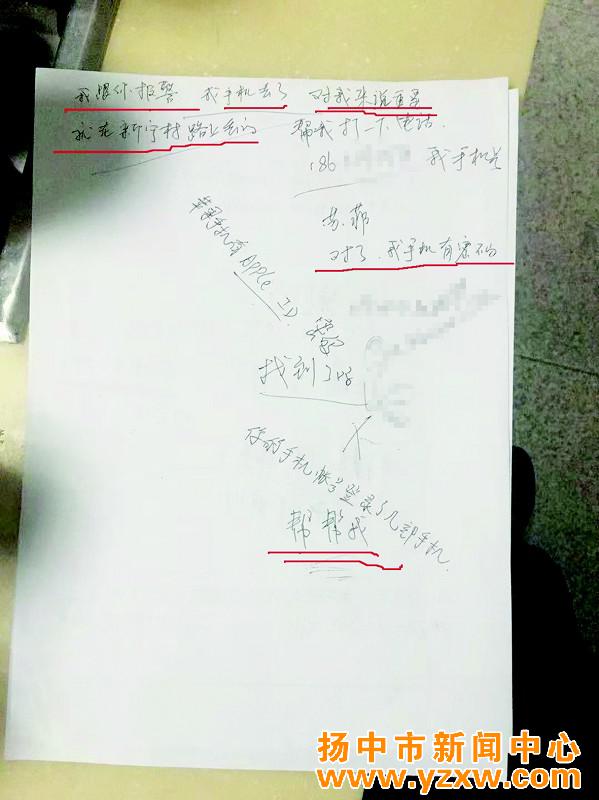 我跟你报警 我手机丢了 对我来说重要
就在新宁村路上丢的 帮我打一下电话.
186 我手机号
苏.菲
对了.我手机有密码
苹果手机有Apple ID.
找到了吗
你的手机账号登录了几部手机.
帮帮我
扬中市新闻中心
www.yzxw.com